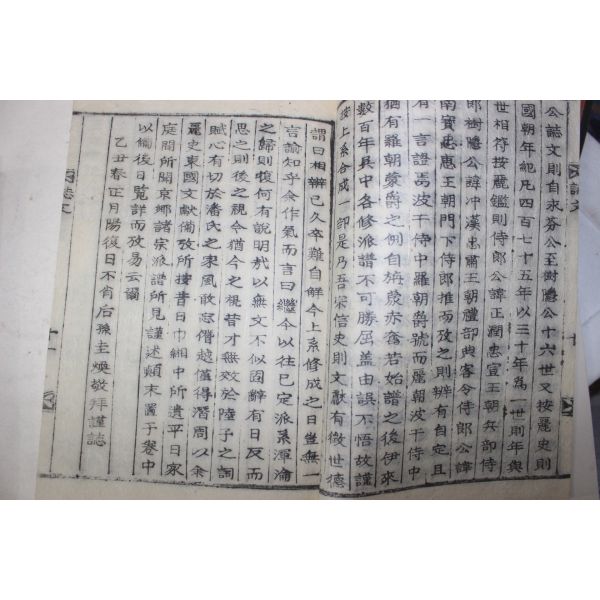 公誌文則自永芬公至樹德公十六世又按麗史則
國朝年紀凡四百七十五年以三十年為一世則年與
世相符按麗鑑則侍郎公諱正潤忠宣王朝兵部侍
郎樹德公諱冲漢忠肅王朝禮部典客令侍郎公諱
南寶忠惠王朝門下侍郎推而攷之則辨有自定且
有一言證焉波干侍中羅朝爵號而麗朝波干侍中
猶有羅朝蒙爵之例自旃蒙赤奮若始譜之後伊來
數百年其中各修派譜不可勝屈盖由誤不悟故謹
按上系合成一卽是乃吾宗信史則文獻有徵世德
謂曰相辨已久卒難自解今上系修成之日豈無一
言諭知乎余作氣而言曰繼今以往已定派系渾淪
之歸則復何有說明哉以無文不似固辭有日反而
思之則後之視今猶今之視昔才無效於陸子之詞
賦心有切於潘氏之家風敢忘僭越值得潛周以余
麗史東國文獻備攷所按昔日巾緗中所遺平日家
庭間所聞京鄕諸宗派譜所見謹述顚末置子卷中
以備後日覧詳而攷易云爾
乙丑春正月陽復日不肖后孫圭煥敬拜謹誌
誌文
誌文